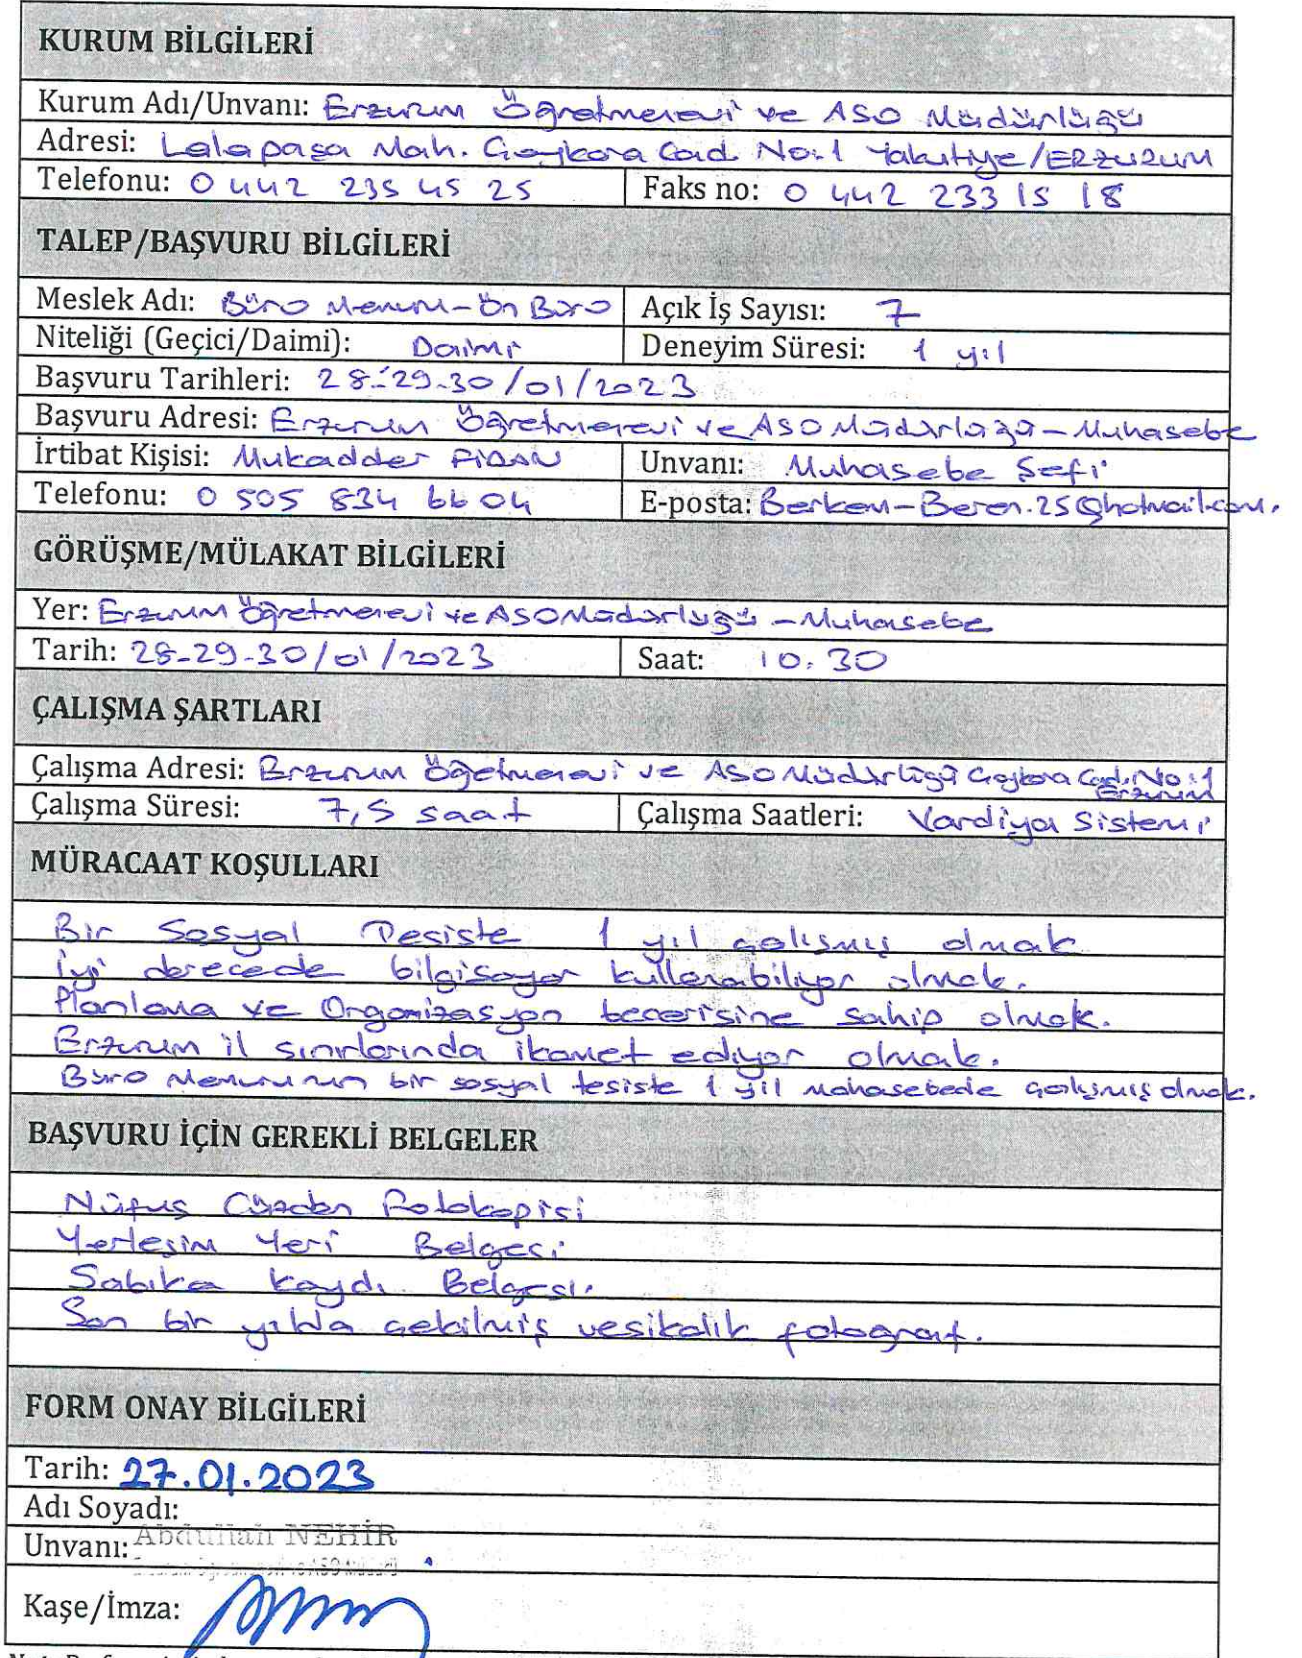 KURUM BİLGİLERİ
Kurum Adı/Unvanı: Erzurum Öğretmenevi ve ASO Müdürlüğü
Adresi: Lalapaşa Mah. Çaykara Cad. No:1 Yakutiye/ERZURUM
Telefonu: 0 442 235 45 25 Faks no: 0 442 233 15 18
TALEP/BAŞVURU BİLGİLERİ
Meslek Adı: Büro Memuru-Ön Büro Açık İş Sayısı: 7
Niteliği (Geçici/Daimi): Daimi Deneyim Süresi: 1 yıl
Başvuru Tarihleri: 28-29-30/01/2023
Başvuru Adresi: Erzurum Öğretmenevi ve ASO Müdürlüğü - Muhasebe
İrtibat Kişisi: Mukadder FİDAN Unvanı: Muhasebe Şefi
Telefonu: 0 505 834 66 04 E-posta: Berkem-Beren.25@hotmail.com.
GÖRÜŞME/MÜLAKAT BİLGİLERİ
Yer: Erzurum Öğretmenevi ve ASO Müdürlüğü - Muhasebe
Tarih: 28-29-30/01/2023 Saat: 10.30
ÇALIŞMA ŞARTLARI
Çalışma Adresi: Erzurum Öğetmenevi ve ASO Müdürlüğü Çaykara Cad. No:1 Erzurum
Çalışma Süresi: 7,5 saat Çalışma Saatleri: Vardiya Sistemi
MÜRACAAT KOŞULLARI
Bir Sosyal Tesiste 1 yıl çalışmış olmak
İyi derecede bilgisayar kullanabiliyor olmak.
Planlama ve Organizasyon becerisine sahip olmak.
Erzurum il sınırlarında ikamet ediyor olmak.
Büro Memurunun bir sosyal tesiste 1 yıl muhasebede çalışmış olmak.
BAŞVURU İÇİN GEREKLİ BELGELER
Nüfus Cüzdan Fotokopisi
Yerleşim Yeri Belgesi
Sabıka kaydı Belgesi.
Son bir yılda çekilmiş vesikalık fotograf.
FORM ONAY BİLGİLERİ
Tarih: 27.01.2023
Adı Soyadı:
Abdullah NEHİR
Unvanı:
Kaşe/İmza: